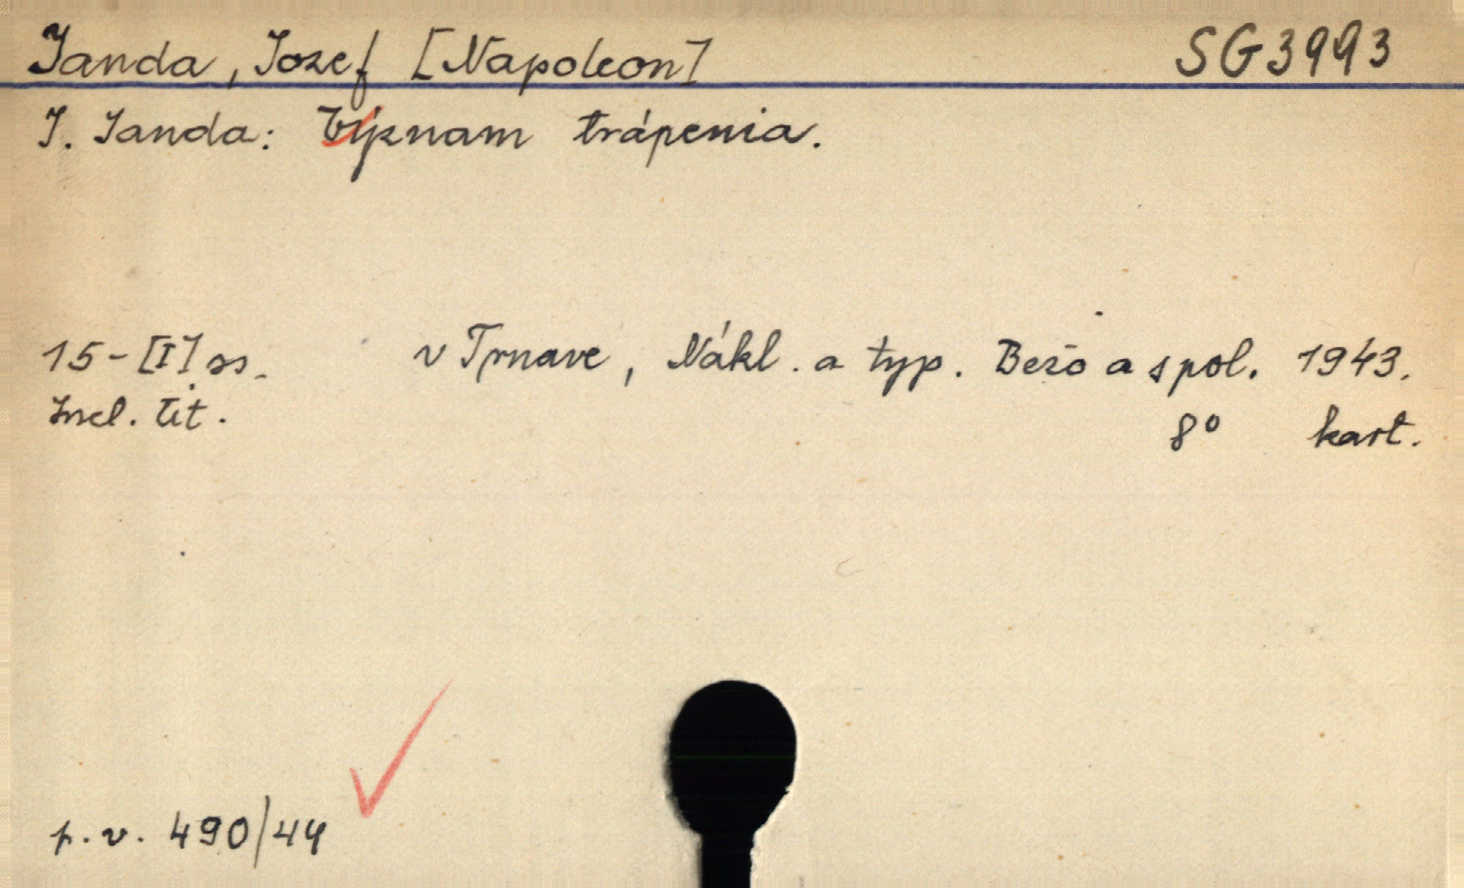 Janda, Jozef [Napoleon] SG3993
J. Janda: Význam trápenia.
15-[I] ss. v Trnave, Nákl. a typ. Bežo a spol. 1943.
Incl. tit. 8° kart.
p.v. 490/44